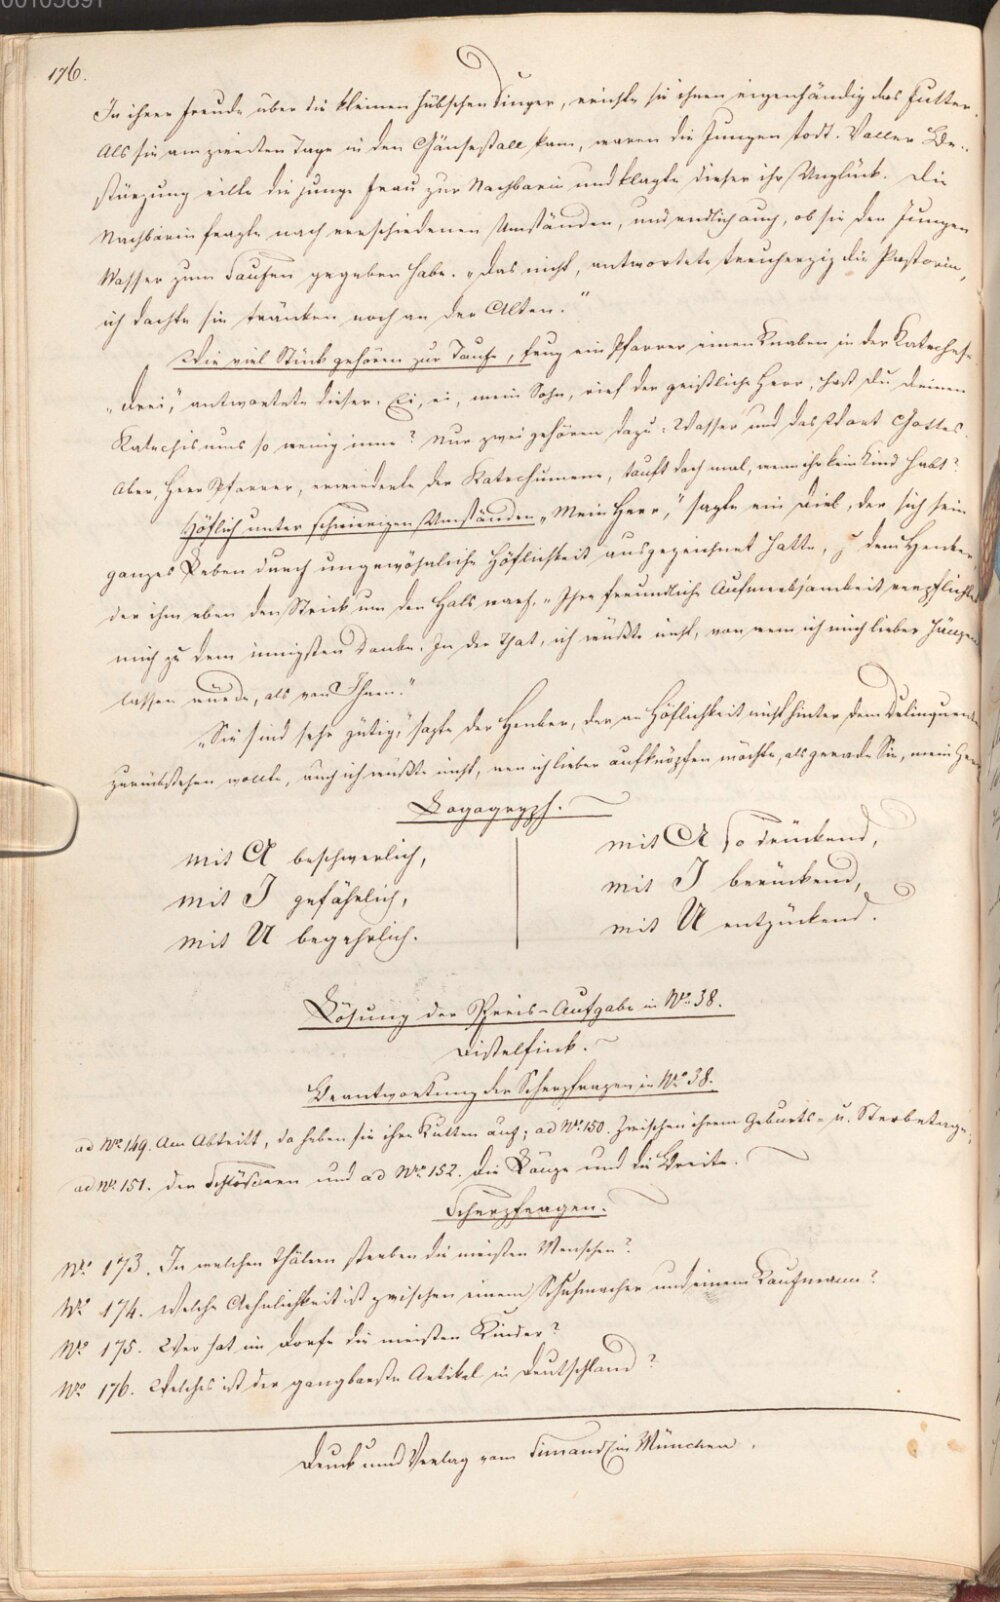 00105891
176.
In ihrer Freude über die kleinen hübschen Dinger, reichte sie ihnen eigenhändig das Futter.
Als sie am zweiten Tage in den Gänsestall kam, waren die Jungen todt. Voller Be-
stürzung eilte die junge Frau zur Nachbarin und klagte dieser ihr Unglück. Die
Nachbarin fragte nach verschiedenen Umständen, und endlich auch, ob sie den Jungen
Wasser zum Saufen gegeben habe. „Das nicht, antwortete treuherzig die Pastorin,
ich dachte sie tränken noch an der Alten.“
Wie viel Stück gehören zur Taufe, frug ein Pfarrer einen Knaben in der Katechese
„Drei,“ antwortete dieser. Ei, ei, mein Sohn, rief der geistliche Herr, hast Du Deinen
Katechismus so wenig inne? Nur zwei gehören dazu: Wasser und das Wort Gottes.
Aber, Herr Pfarrer, erwiederte der Katechumene, tauft doch mal, wenn ihr kein Kind habt?
Höflich unter schwierigen Umständen. „Mein Herr,“ sagte ein Dieb, der sich sein
ganzes Leben durch ungewöhnliche Höflichkeit ausgezeichnet hatte, z. dem Henker
der ihm eben den Strick um den Hals warf. „Ihre freundliche Aufmerksamkeit verpflichtet
mich zu dem innigsten Danke. In der That, ich wüßte nicht, von wem ich mich lieber hängen
lassen würde, als von Ihnen.“
„Sie sind sehr gütig,“ sagte der Henker, der an Höflichkeit nicht hinter dem Delinquenten
zurückstehen wollte, auch ich wüßte nicht, wen ich lieber aufknöpfen möchte, als gerade Sie, mein Herr
Logogryph.
mit A beschwerlich,
mit I gefährlich,
mit U begehrlich.
mit A so drückend,
mit I berückend,
mit U entzückend.
Lösung der Preis-Aufgabe in No. 38.
Distelfink.
Beantwortung der Scherzfragen in No. 38.
ad No. 149. Am Abtritt, da heben sie ihre Kutten auf; ad No. 150. Zwischen ihrem Geburts- u. Sterbetage;
ad No. 151. den Schlössern und ad No. 152. die Länge und die Breite.
Scherzfragen.
No. 173. In welchen Thälern sterben die meisten Menschen?
No. 174. Welche Aehnlichkeit ist zwischen einem Schuhmacher und einem Kaufmann?
No. 175. Wer hat im Dorfe die meisten Kinder?
No. 176. Welches ist der gangbarste Artikel in Deutschland?
Druck und Verlag von in München.